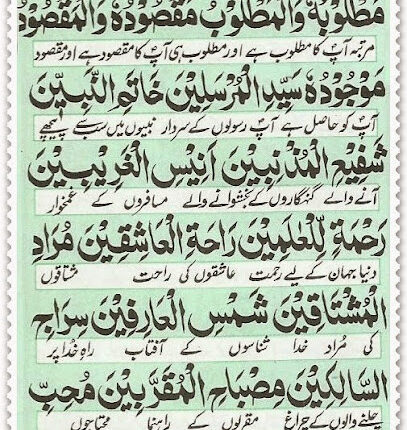 مَطْلُوْبُهٗ وَالْمَطْلُوْبُ مَقْصُوْدُهٗ وَالْمَقْصُوْدُ
مرتبہ آپؐ کا مطلوب ہے اور مطلوب ہی آپؐ کا مقصود ہے اور مقصود
مَوْجُوْدُهٗ سَيِّدِ الْمُرْسَلِيْنَ خَاتَمِ النَّبِيِّيْنَ
آپؐ کو حاصل ہے آپؐ رسولوں کے سردار نبیوں میں سب سے پیچھے
شَفِيْعِ الْمُذْنِبِيْنَ اَنِيْسِ الْغَرِيْبِيْنَ
آنے والے گنہگاروں کے بخشوانے والے مسافروں کے غمخوار
رَحْمَةٍ لِّلْعٰلَمِيْنَ رَاحَةِ الْعَاشِقِيْنَ مُرَادِ
دنیا جہان کے لیے رحمت عاشقوں کی راحت مشتاقوں
الْمُشْتَاقِيْنَ شَمْسِ الْعَارِفِيْنَ سِرَاجِ
کی مُراد خدا شناسوں کے آفتاب راہِ خُدا پر
السَّالِكِيْنَ مِصْبَاحِ الْمُقَرَّبِيْنَ مُحِبِّ
چلنے والوں کے چراغ مقربوں کے راہنما محتاجوں